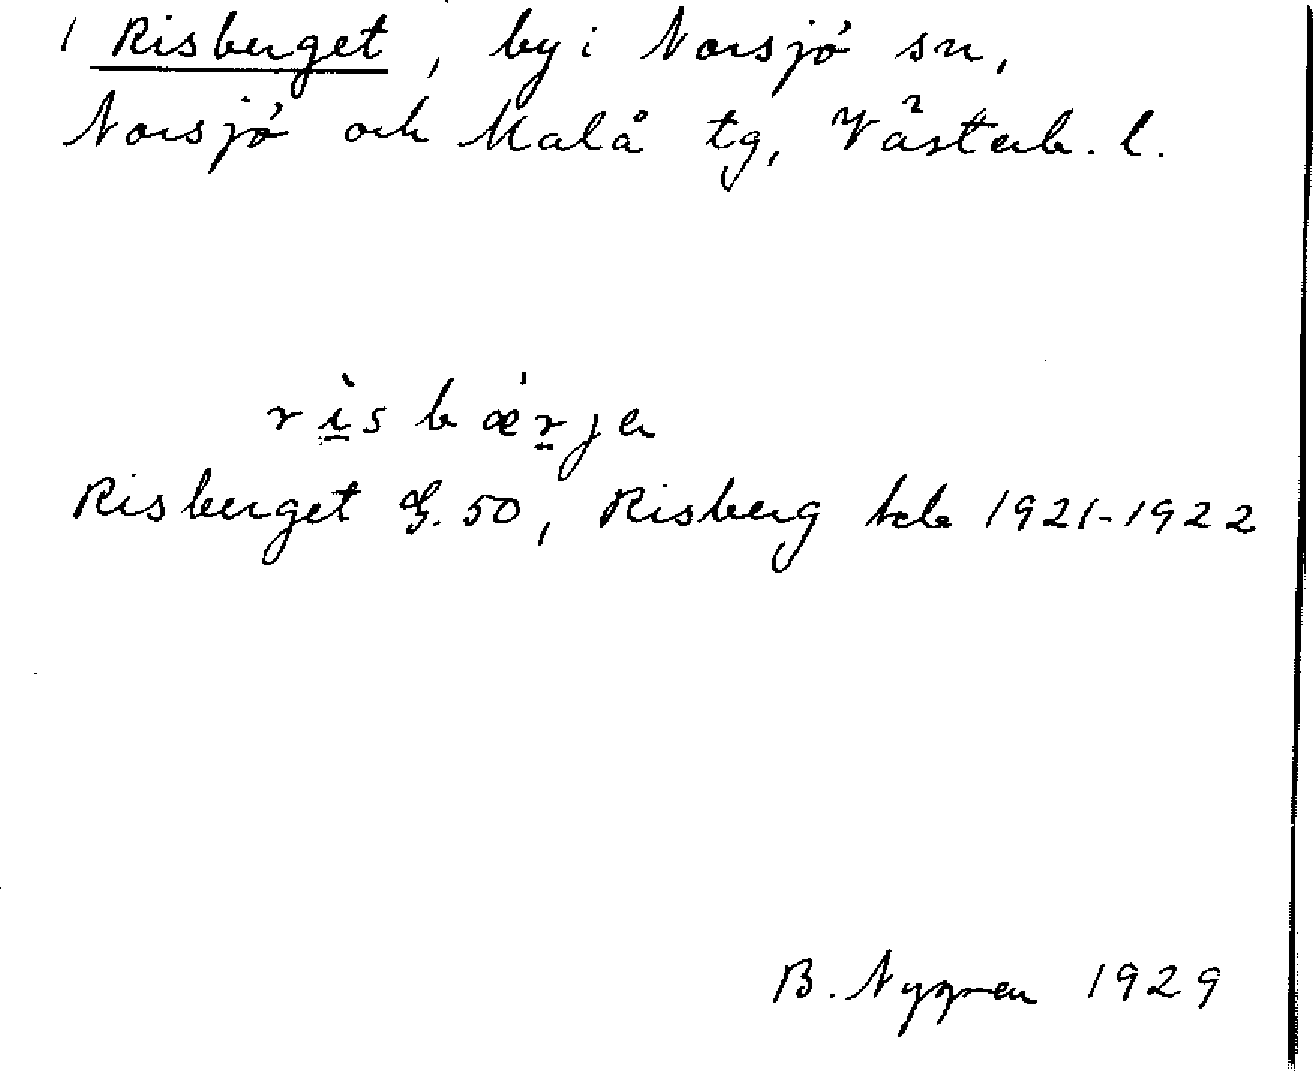 1 Risberget, by i Norsjö sn,
Norsjö och Malå tg, Västerb. l.
ri̱sbær̤ja
Risberget G. 50, Risberg tab 1921-1922
B. Nygren 1929